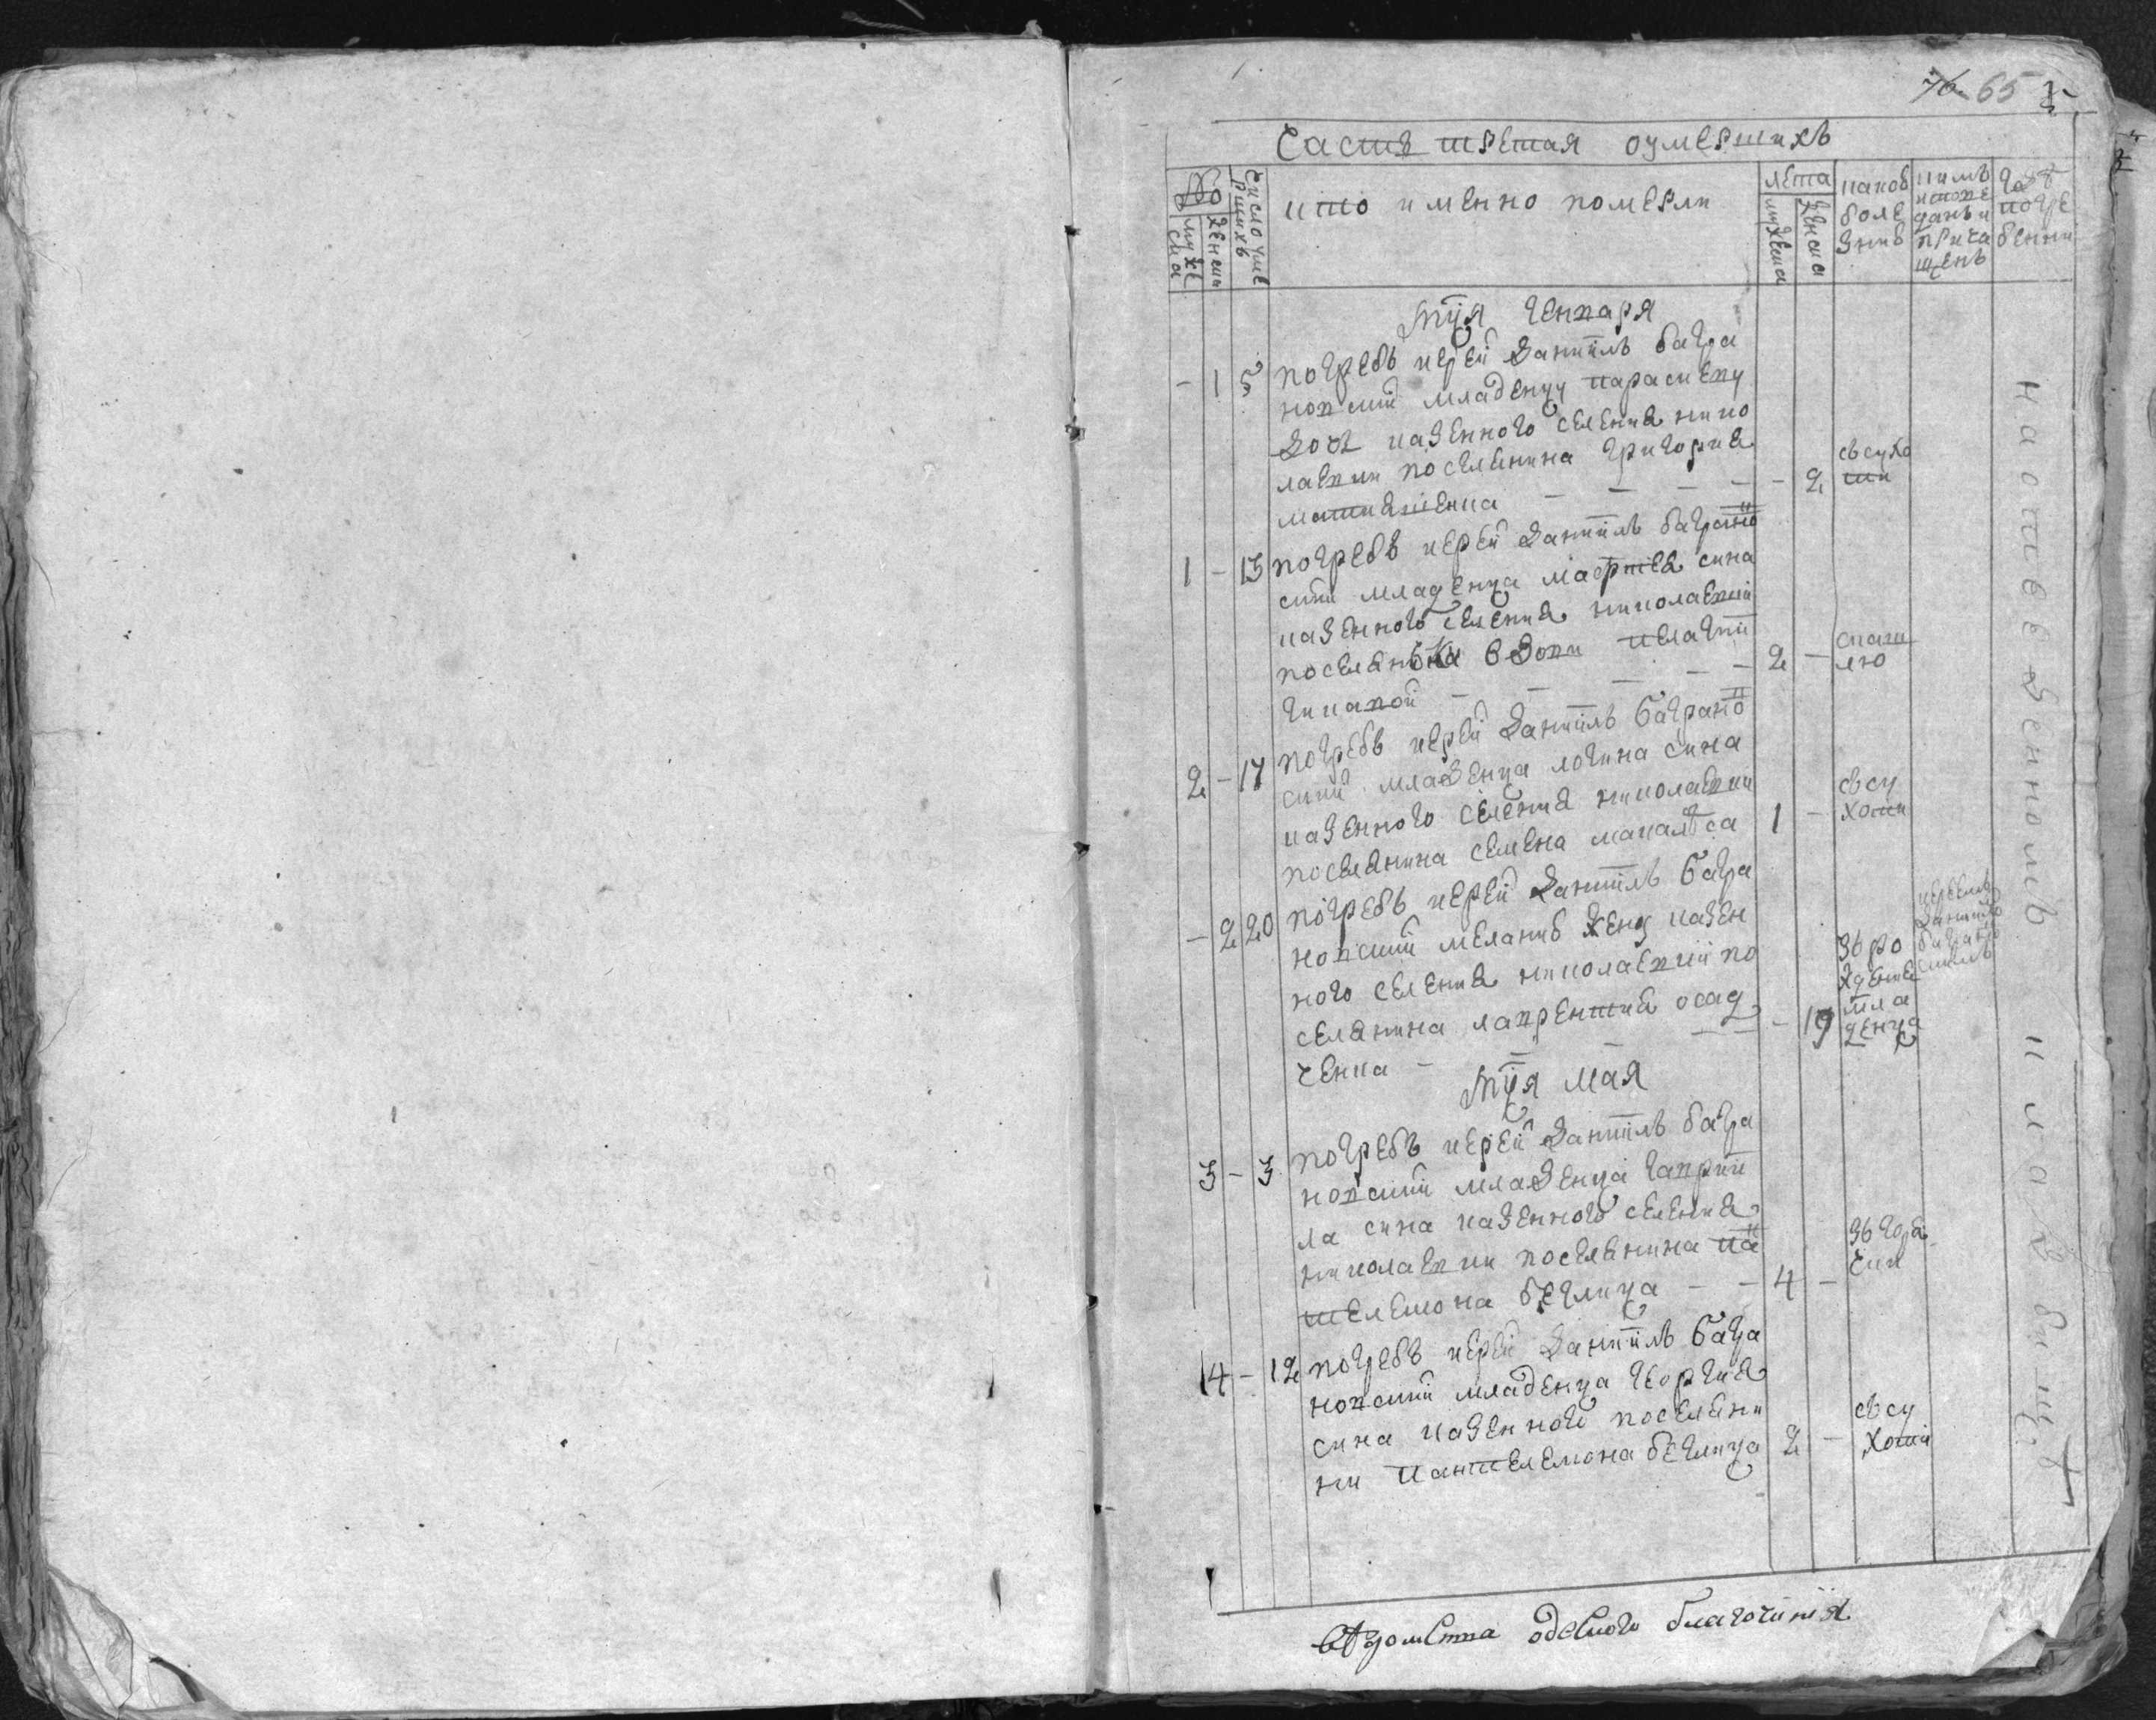 76. 65
Часть третая оумершихъ
№
мужеска
женски
Число умершихъ
кто именно померли
лета
мужеска
женска
какой
боле
зние
кимъ
испове
данъ и
прича
щенъ
где
погре
бенни
мця генваря
- 1 5 погребъ иерей Данїилъ багра
новский младенцу параскеву
дочь казенного селения нико
лаевки поселянина григория
- 2
съ сухо
ти
1 - 13 погребъ иерей Данїилъ баграно
ский младенца сина
казенного селения николаевкы
вдови
2 -
кашлю
2 - 17 погребъ иерей Данїилъ баграно
ский младенца логина сина
казенного селения николаевки
поселянина семена
1 -
съ су
хоти
- 2 20 погребъ иерей Данїилъ багра
новский меланию жену казен
ного селения николаевкии по
селянина лаврентия осад
ченка
- 19
зъ ро
ждения
мла
денца
иереемъ
Данїило
баграно
скимъ
мця мая
3 - 3 погребъ иерей Данїилъ багра
новский младенца гаврии
ла сина казенного селения
николаевки поселянина па
телемона беглица
4 -
зъ горя
чки
4 - 12 погребъ иерей Данїилъ багра
новский младенца георгия
сина казенного поселяни
ни пантелемона беглица
2 -
съ су
хоти
на отведенномъ кладбищѣ
Вѣдомства одеского благочинїя